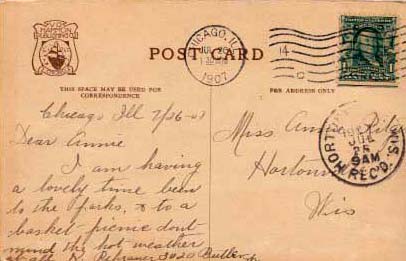 POST CARD
THIS SPACE MAY BE USED FOR
CORRESPONDENCE
FOR ADDRESS ONLY
V.O. HAMMON
PUBLISHING
CHICAGO, ILL
JUL 26
1907
14
C
HORTON
REC'D.
WIS
JUL
9AM
Chicago Ill 7/26-07
Dear Annie
I am having
a lovely time been
to the Parks, & to a
basket picnic dont
mind the hot weather
at all. K. 3020 Butler
Miss Annie
Horton
Wis